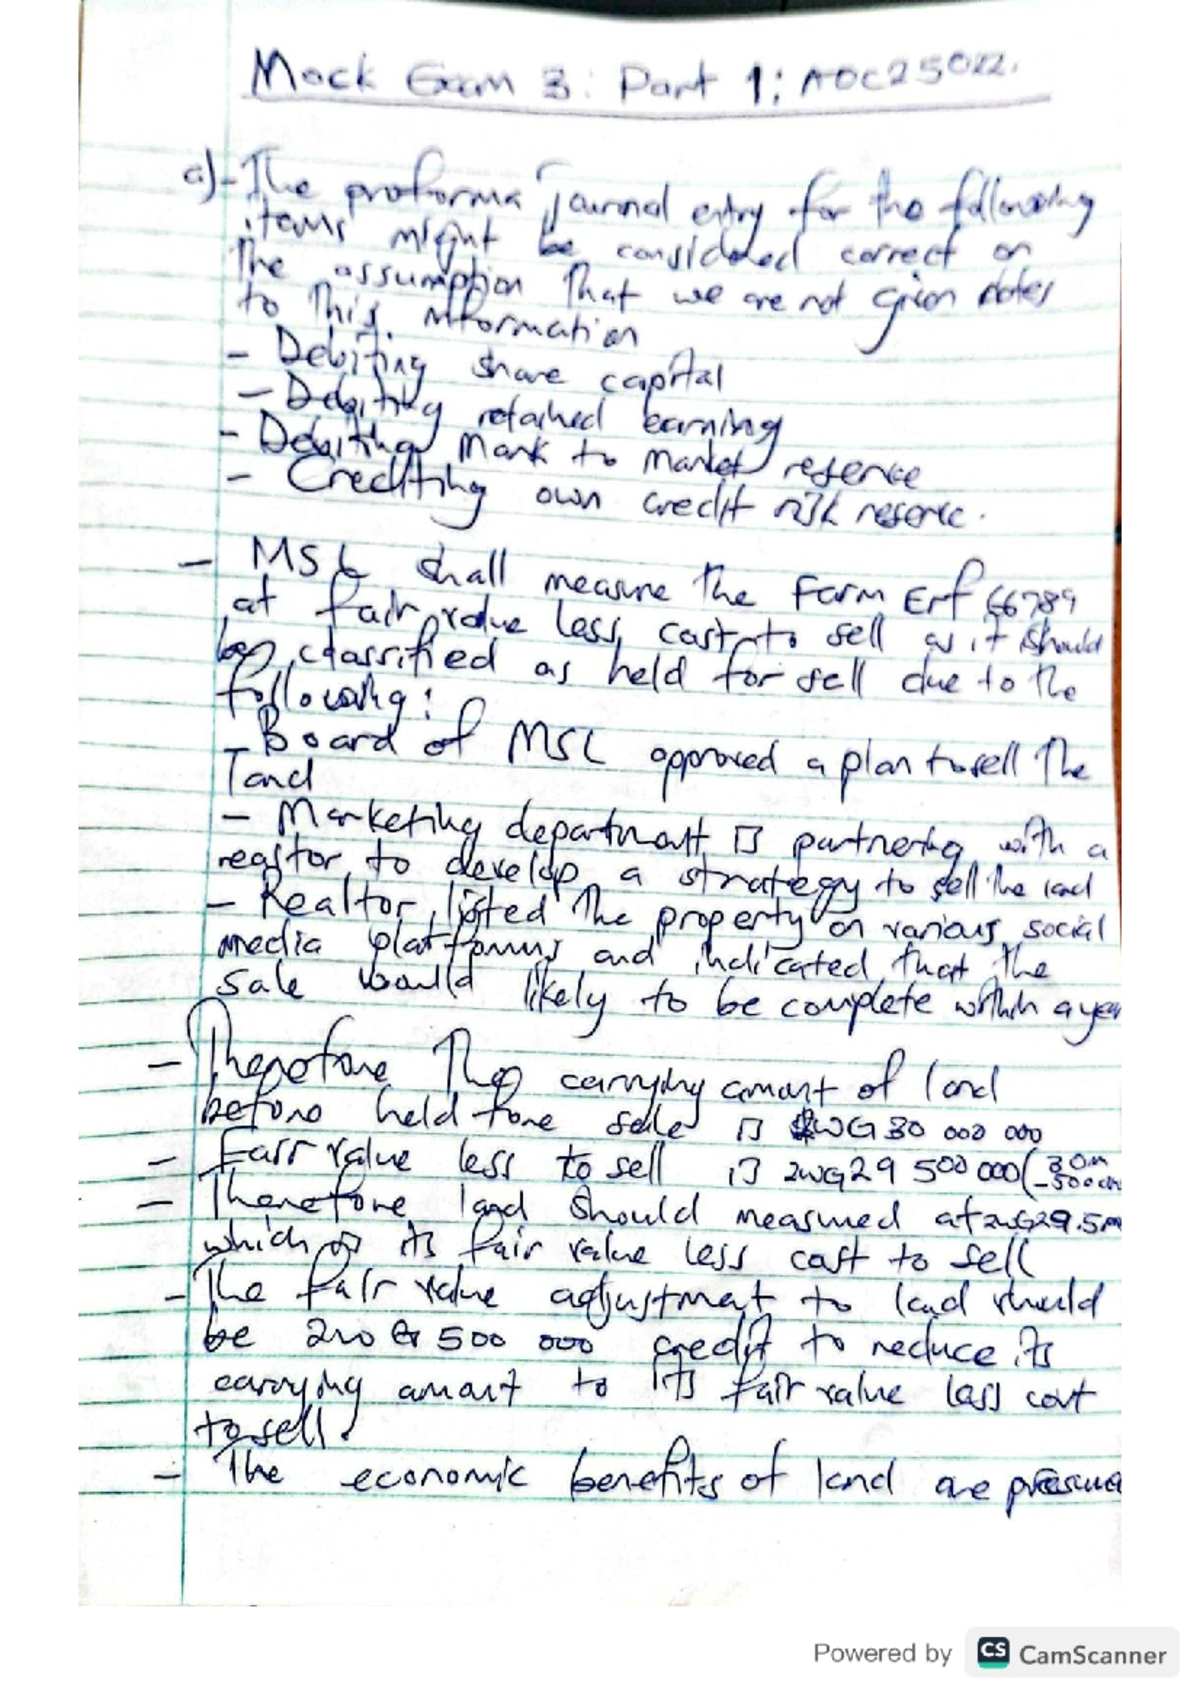 Mock Exam 3: Part 1: AOC25022.
a) - The proforma journal entry for the following
items might be considered correct on
the assumption that we are not given notes
to this information
- Debiting share capital
- Debiting retained earning
- Debiting Mark to market reserve
- Crediting own credit risk reserve.
- MSL shall measure the Farm Erf 66789
at fair value less cost to sell as it should
be classified as held for sell due to the
following:
- Board of MSL approved a plan to sell the
land
- Marketing department is partnering with a
realtor to develop a strategy to sell the land
- Realtor listed the property on various social
media platforms and indicated that the
sale would likely to be complete within a year
- Therefore the carrying amount of land
before held fore sale is ZWG 30 000 000
- Fair value less to sell is ZWG29 500 000 (30m
-
- Therefore land should measured at ZWG29.5m
which is its fair value less cost to sell
- The fair value adjustment to land should
be ZWG 500 000 credit to reduce its
carrying amount to its fair value less cost
to sell.
- The economic benefits of land are
Powered by CS CamScanner